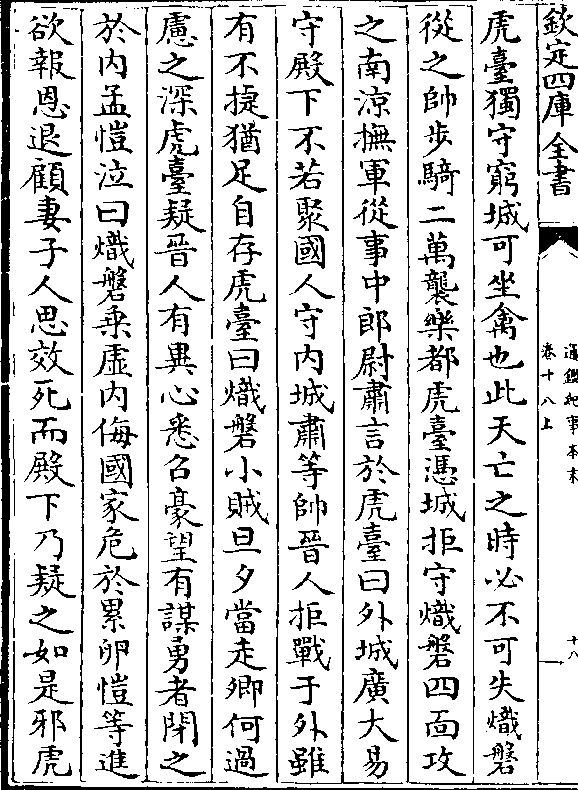 欽定四庫全書
通鑑紀事本末
卷十八上
十八
虎臺獨守窮城可坐禽也此天亡之時必不可失熾磐
從之帥步騎二萬襲樂都虎臺憑城拒守熾磐四面攻
之南涼撫軍從事中郎尉肅言於虎臺曰外城廣大易
守殿下不若聚國人守内城肅等帥晉人拒戰于外雖
有不捷猶足自存虎臺曰熾磐小賊旦夕當走卿何過
慮之深虎臺疑晉人有異心悉召豪望有謀勇者閉之
於内孟愷泣曰熾磐乗虛内侮國家危於累卵愷等進
欲報恩退顧妻子人思效死而殿下乃疑之如是邪虎